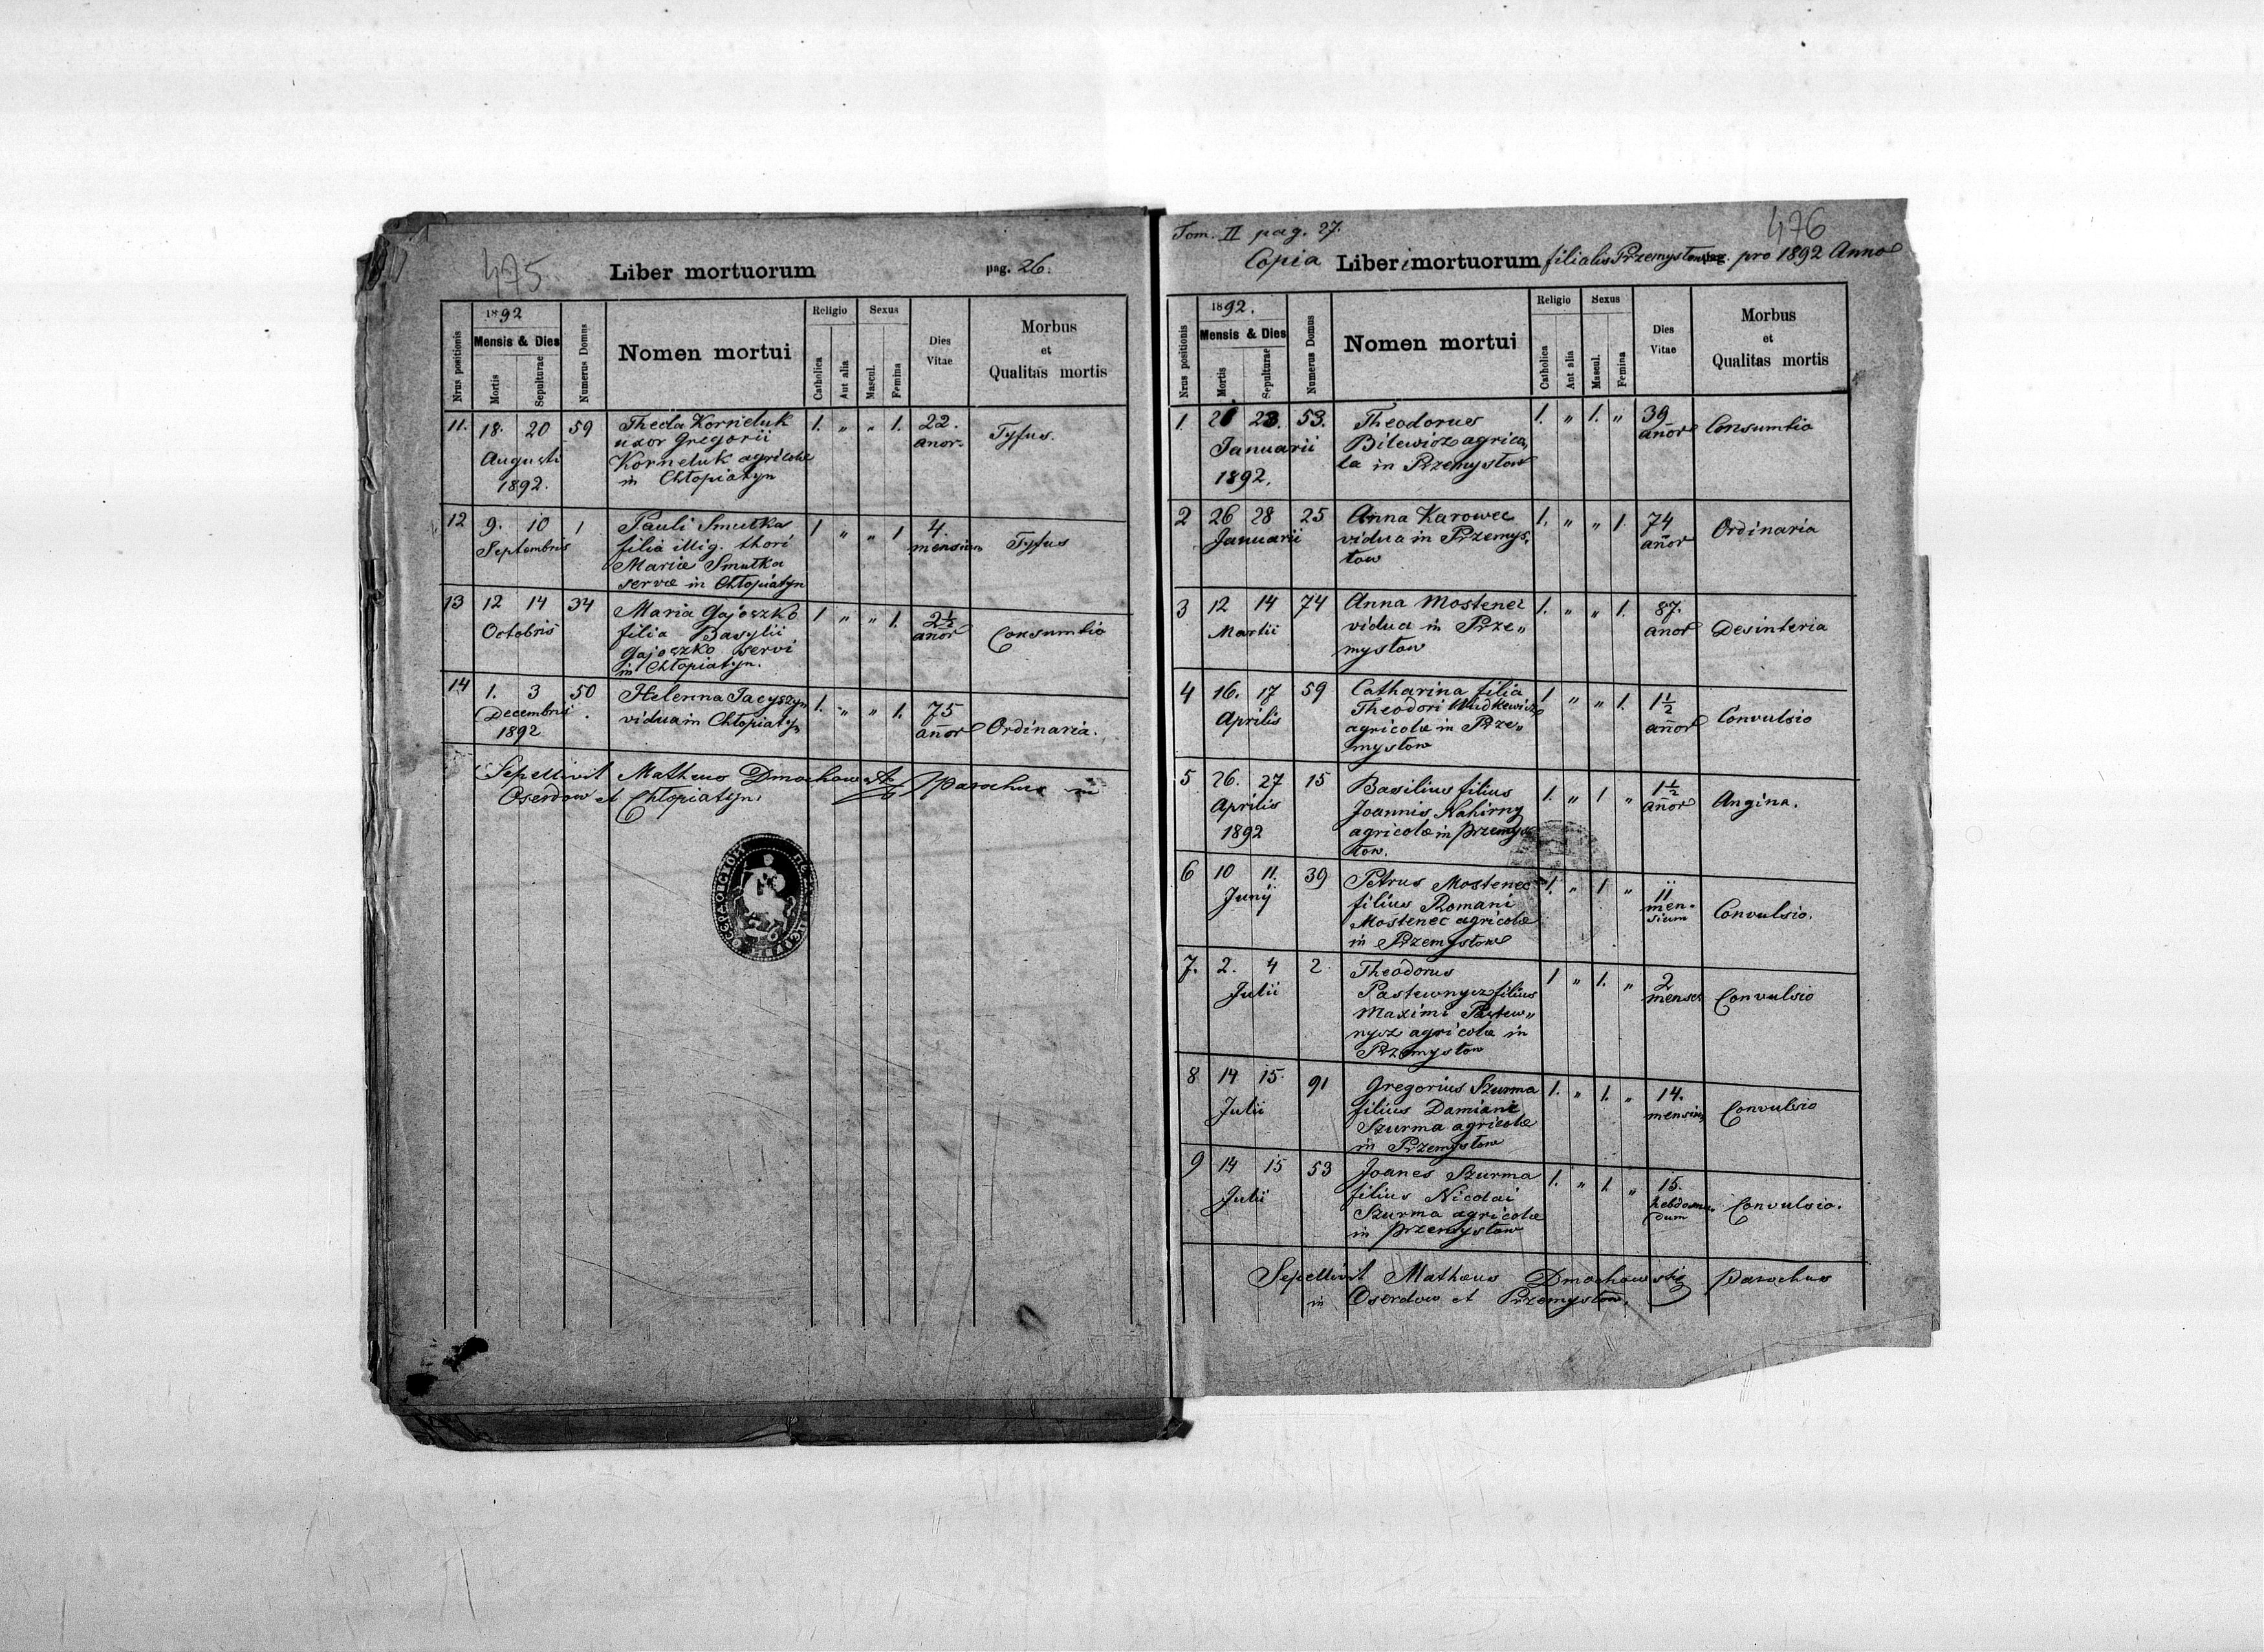 475
Liber mortuorum pag. 26.
Nrus positionis
1892
Mensis & Dies
Mortis
Sepulturae
Numerus Domus
Nomen mortui
Religio
Catholica
Aut alia
Sexus
Mascul.
Femina
Dies
Vitae
Morbus
et
Qualitas mortis
11. 18. 20 59 Thecla Korneluk 1. „ „ 1. 22. Tyfus.
uxor Gregorii añor.
Augusti Korneluk agricolæ
1892. in Chłopiatyn
12 9. 10 1 Pauli Smutka 1 „ „ 1 4. Tyfus
Septembris filia illig. thori mensium
Mariæ Smutka
servæ in Chłopiatyn
13 12 14 34 Maria Gajoszko 1 „ „ 1. 2½ Consumtio
Octobris filia Basylii añor
Gajoszko servi
in Chłopiatyn.
14 1. 3 50 Helenna Jacyszyn 1. „ „ 1. 75 Ordinaria.
Decembris vidua in Chłopiatyn añor
1892
Sepellivit Matheus Dmochowski Parochus in
Oserdow et Chłopiatyn.
Tom. II pag. 27.
476
Copia Liberi mortuorum filialis Przemysłow pro 1892 Anno
Nrus positionis
1892.
Mensis & Dies
Mortis
Sepulturae
Numerus Domus
Nomen mortui
Religio
Catholica
Aut alia
Sexus
Mascul.
Femina
Dies
Vitae
Morbus
et
Qualitas mortis
1. 23. 53. Theodorus 1. „ 1. „ 39 Consumtio
Januarii Bilewicz agrico„ añor
1892. la in Przemysłow
2 26 28 25 Anna Karowec 1. „ „ 1. 74 Ordinaria
Januarii vidua in Przemys„ añor
łow
3 12 14 74 Anna Mostenec 1. „ „ 1. 87. Desinteria
Martii vidua in Prze„ añor
mysłow
4 16. 17 59 Catharina filia 1 „ „ 1. 1½ Convulsio
Aprilis Theodori Wudkewicz añor
agricolæ in Prze„
mysłow
5 26. 27 15 Basilius filius 1. „ 1 „ 1½ Angina.
Aprilis Joannis Nahirny añor
1892 agricolæ in Przemys
łow.
6 10 11. 39 Petrus Mostenec 1. „ 1 „ 11 Convulsio.
Junij filius Romani men„
Mostenec agricolæ sium
in Przemysłow
7. 2. 4 2 Theodorus 1 „ 1. „ 2 Convulsio
Julii Pastewnycz filius menses
Maximi Pastew„
nycz agricolæ in
Przemysłow
8 14 15. 91 Gregorius Szurma 1. „ 1. „ 14. Convulsio
Julii filius Damiani mensium
Szurma agricolæ
in Przemysłow
9 14 15 53 Joanes Szurma 1. „ 1. „ 15. Convulsio.
Julii filius Nicolai hebdoma„
Szurma agricolæ dum
in Przemysłow
Sepellivit Matheus Dmochowski Parochus
in Oserdow et Przemysłow.